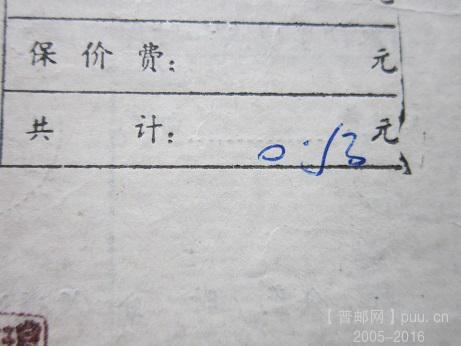 保价费：元
共计：元
0.13
【普邮网】puu.cn
2005-2016